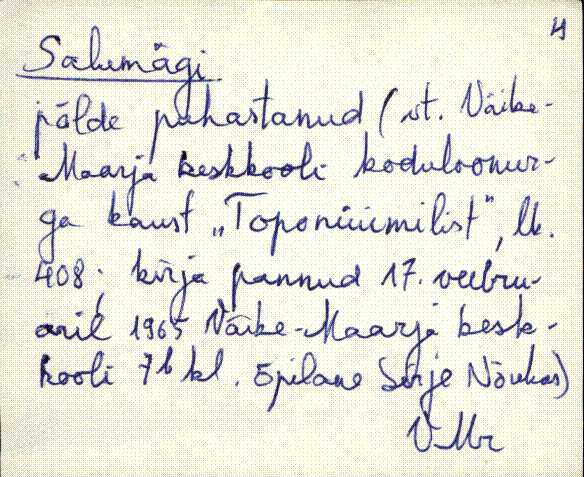 4
Salumägi
põlde puhastanud (vt. Väike-
Maarja keskkooli koduloonur-
ga kaust „Toponüümilist”, lk.
408; kirja pannud 17. veebru-
aril 1965 Väike-Maarja kesk-
kooli 7b kl. õpilane Sirje Nõukas)
VMr